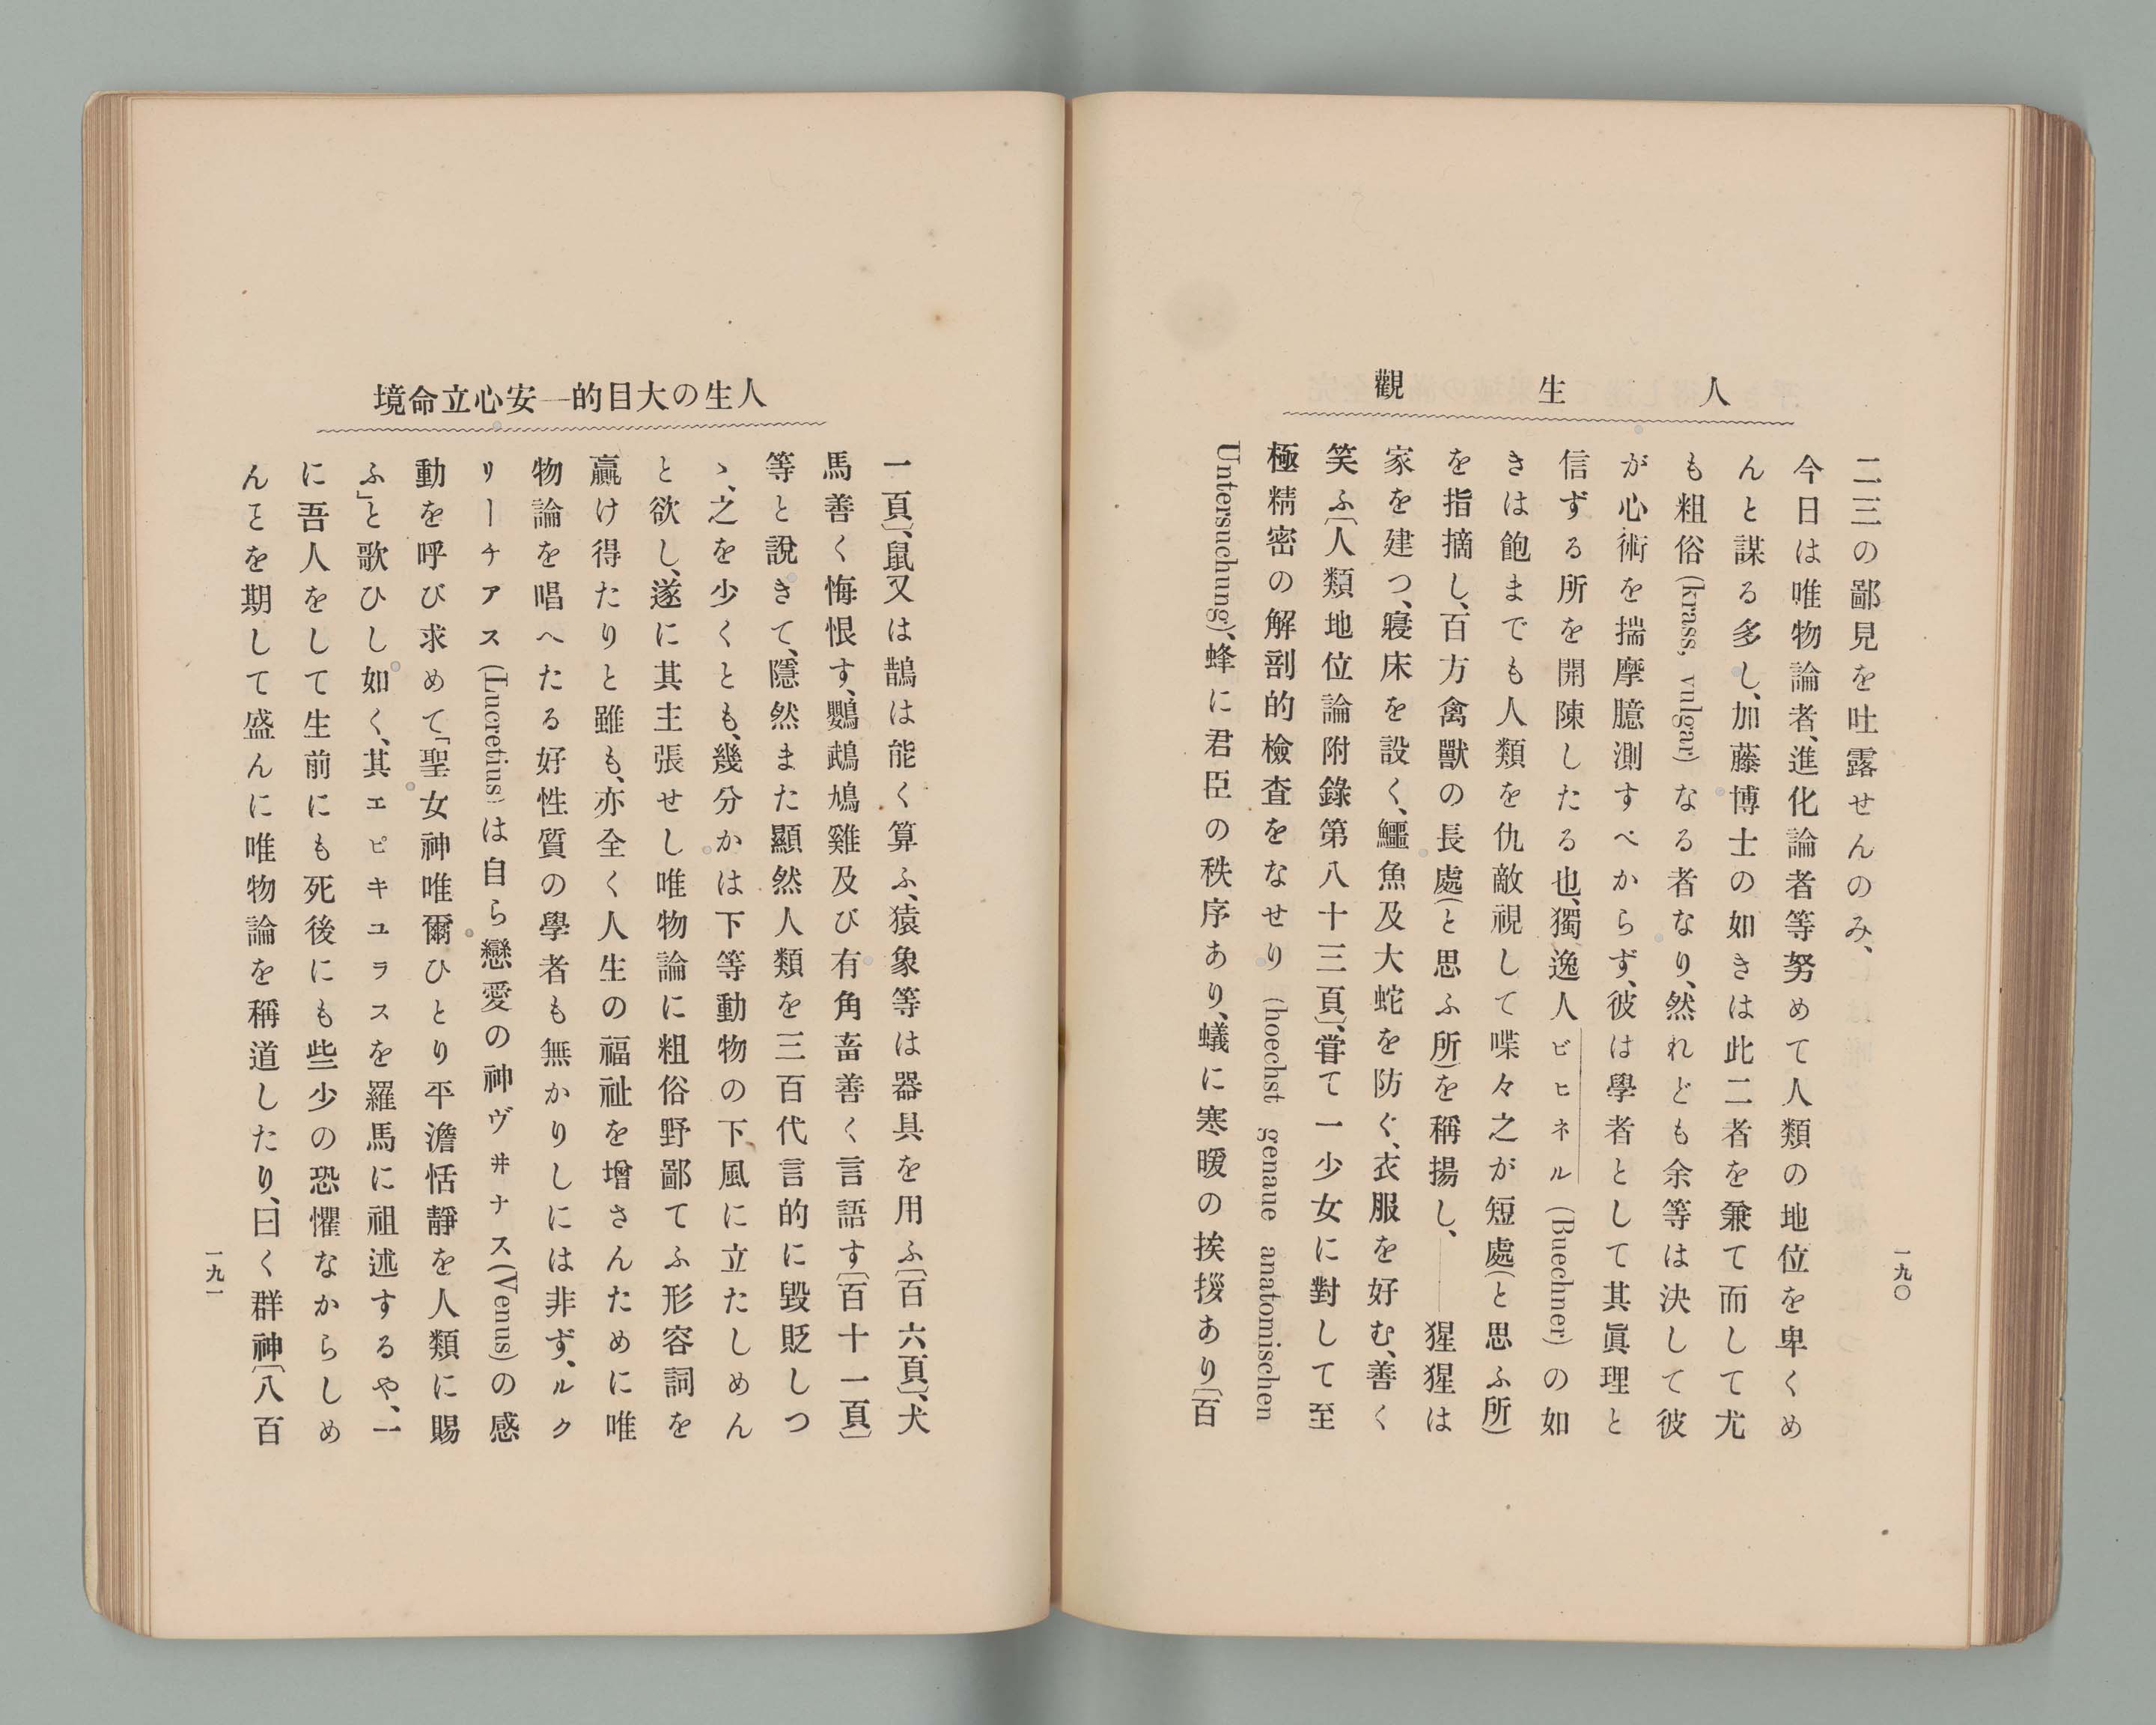 人生觀
二三の鄙見を吐露せんのみ、
今日は唯物論者、進化論者等努めて人類の地位を卑くめ
んと謀る多し、加藤博士の如きは此二者を兼て而して尤
も粗俗(krass, vulgar)なる者なり、然れども余等は決して彼
が心術を揣摩臆測すべからず、彼は學者として其眞理と
信ずる所を開陳したる也、獨逸人ビヒネル(Buechner)の如
きは飽までも人類を仇敵視して喋々之が短處(と思ふ所)
を指摘し、百方禽獸の長處(と思ふ所)を稱揚し、——猩猩は
家を建つ、寢床を設く、鱷魚及大蛇を防ぐ、衣服を好む、善く
笑ふ〔人類地位論附錄第八十三頁〕、甞て一少女に對して至
極精密の解剖的檢査をなせり(hoechst genaue anatomischen
Untersuchung)、蜂に君臣の秩序あり、蟻に寒暖の挨拶あり〔百
一九〇
人生の大目的—安心立命境
一頁〕、鼠又は鵲は能く算ふ、猿象等は器具を用ふ〔百六頁〕、犬
馬善く悔恨す、鸚鵡鳩雞及び有角畜善く言語す〔百十一頁〕
等と說きて、隱然また顯然人類を三百代言的に毀貶しつ
ゝ、之を少くとも、幾分かは下等動物の下風に立たしめん
と欲し、遂に其主張せし唯物論に粗俗野鄙てふ形容詞を
贏け得たりと雖も、亦全く人生の福祉を增さんために唯
物論を唱へたる好性質の學者も無かりしには非ず、ルク
リーチアス(Lucretius)は自ら戀愛の神ヴ井ナス(Venus)の感
動を呼び求めて「聖女神唯爾ひとり平澹恬靜を人類に賜
ふ」と歌ひし如く、其エピキユラスを羅馬に祖述するや、一
に吾人をして生前にも死後にも些少の恐懼なからしめ
んヿを期して盛んに唯物論を稱道したり、曰く群神〔八百
一九一